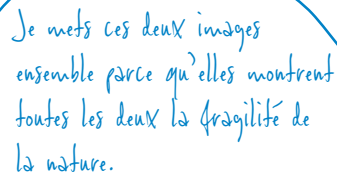 Je mets ces deux images
ensemble parce qu'elles montrent
toutes les deux la fragilité de
la nature.